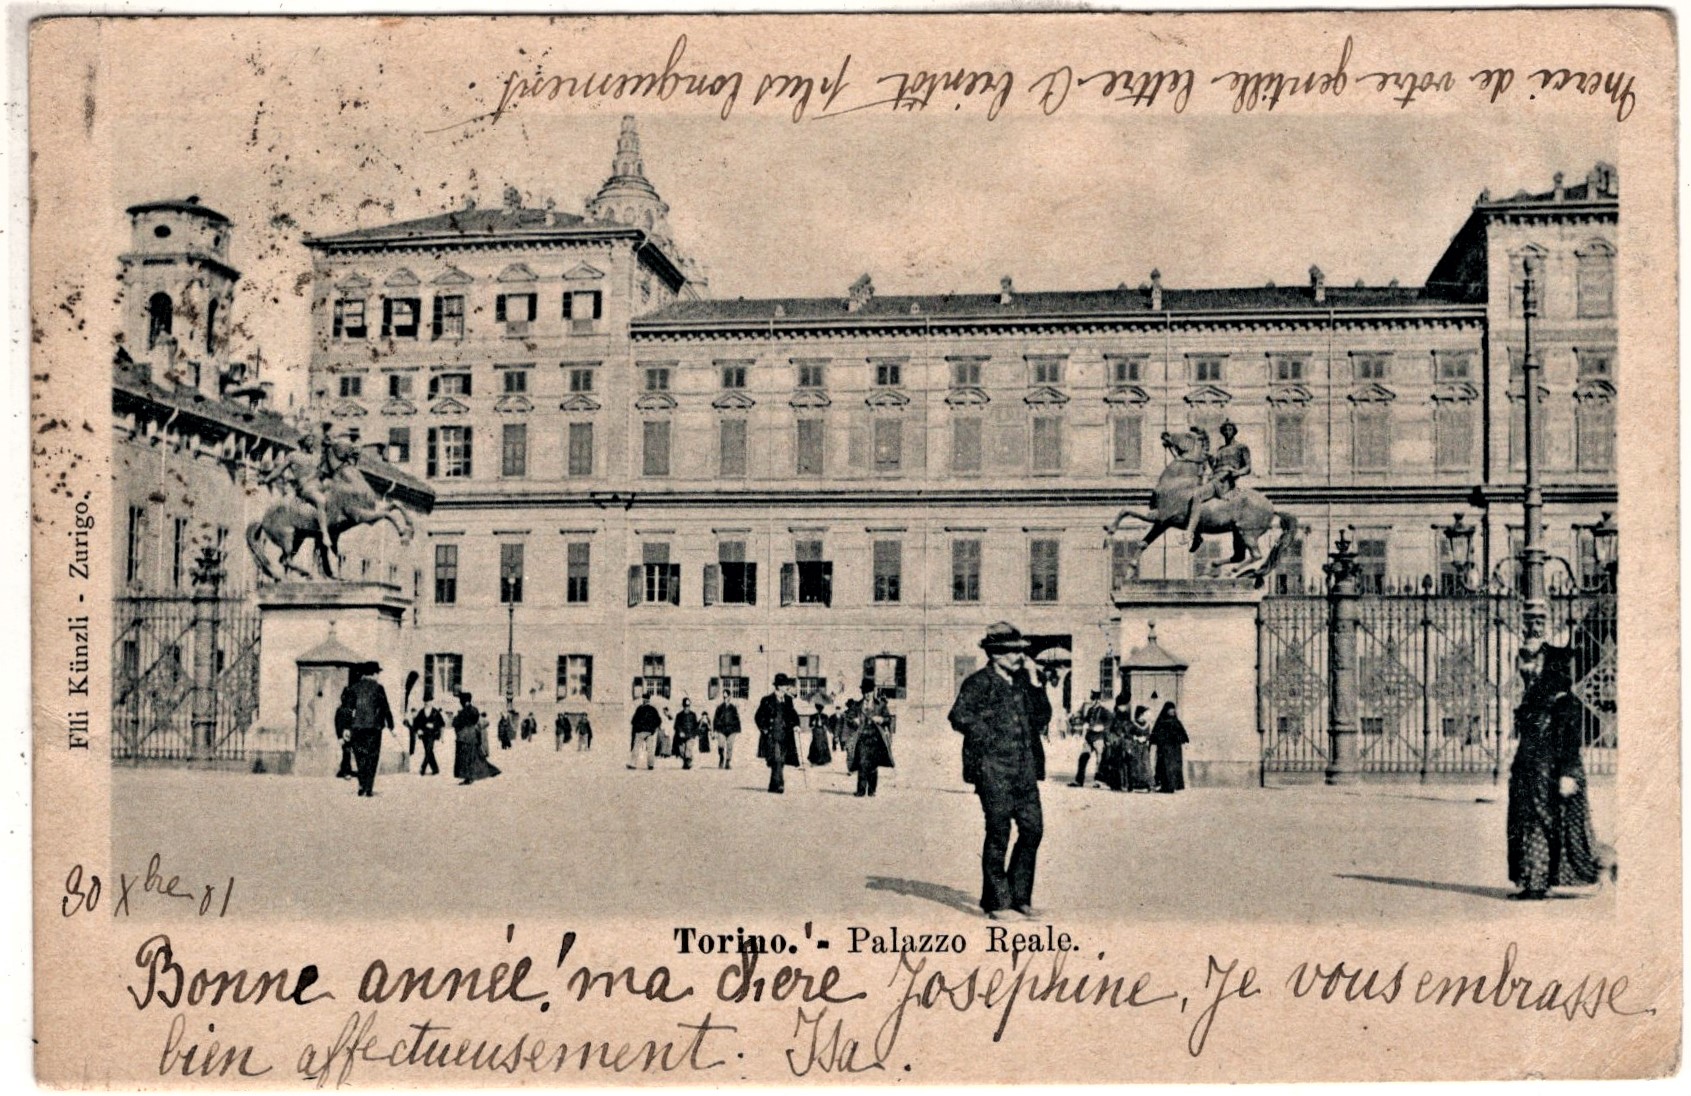 Merci de votre gentille lettre A bientôt plus longuement.
Flli Künzli - Zurigo.
30 Xbre 01
Torino. - Palazzo Reale.
Bonne année! ma chere Joséphine, Je vous embrasse
bien affectueusement. Isa.